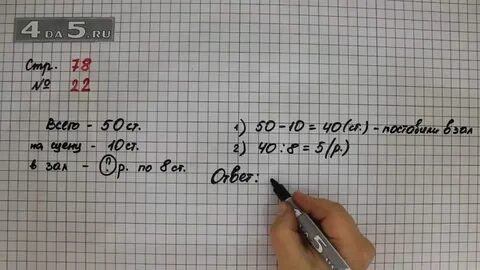 4DA5.RU
Стр. 78
№ 22
Всего - 50 ст.
на сцену - 10 ст.
в зал - ? р. по 8 ст.
1) 50 - 10 = 40 (ст.) - поставили в зал
2) 40 : 8 = 5 (р.)
Ответ: